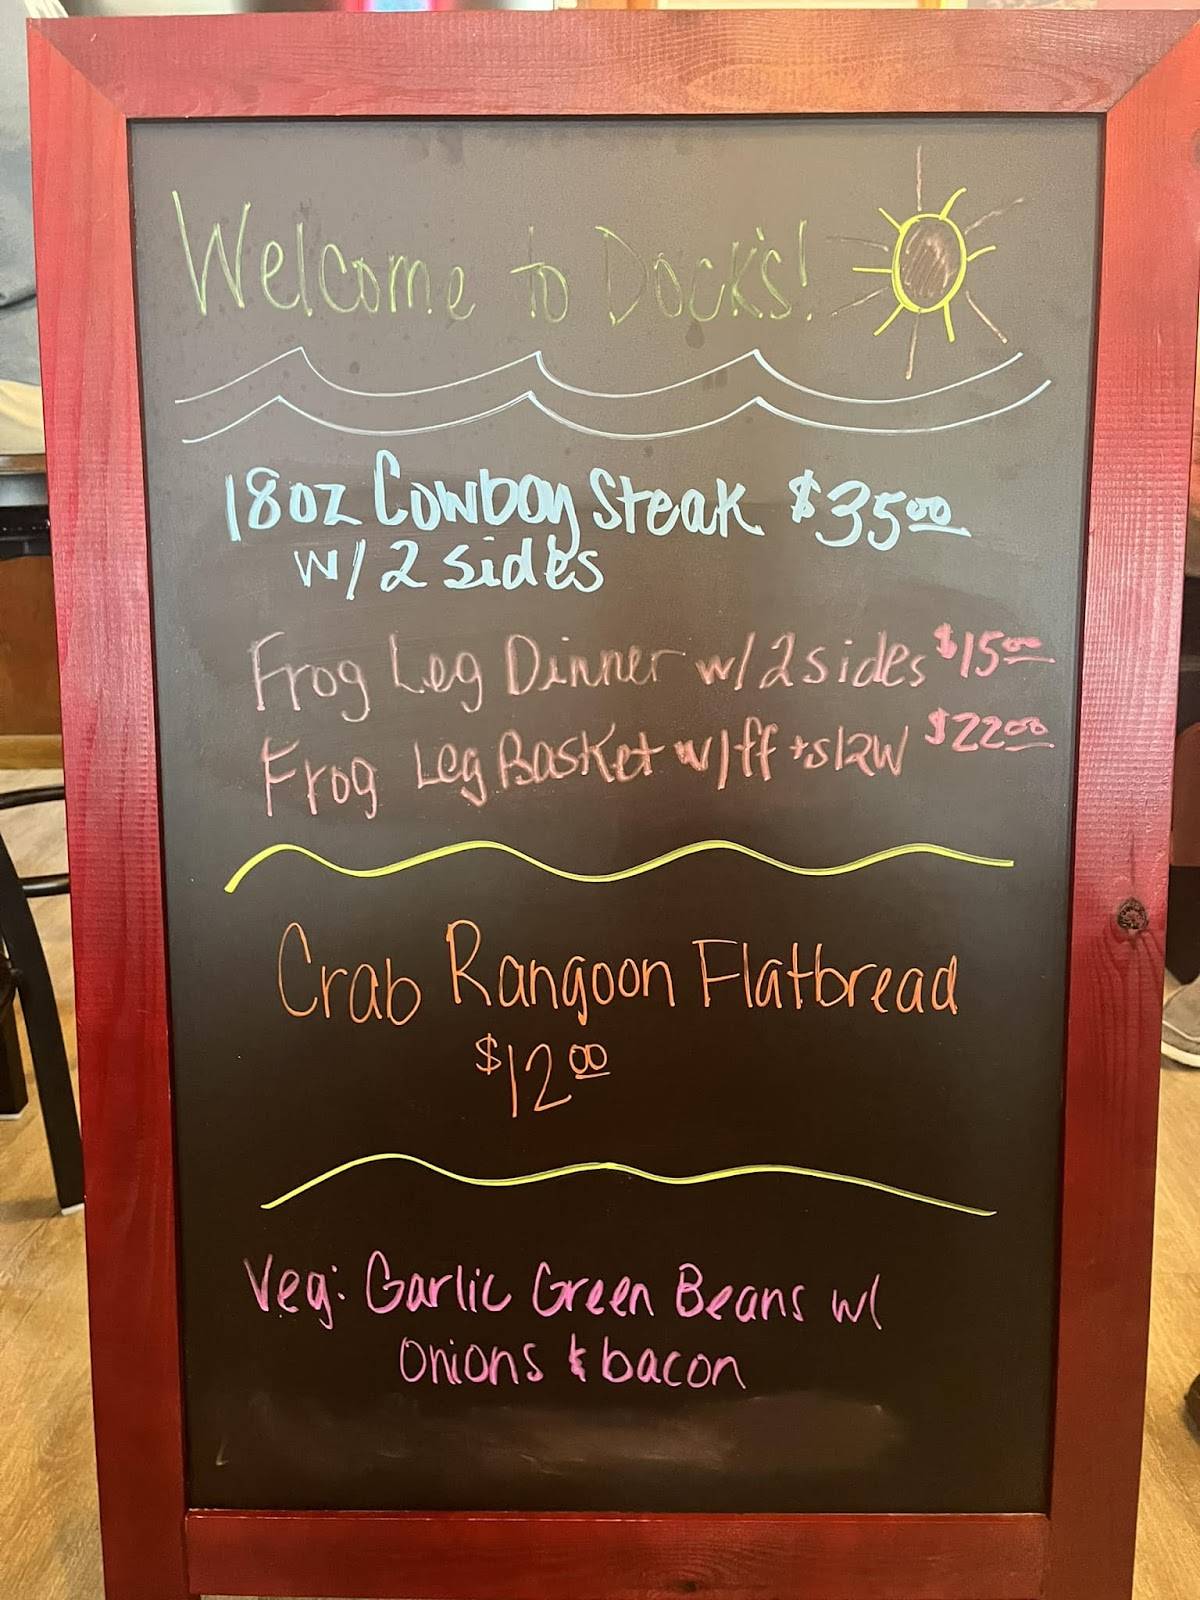 Welcome to Dock's!
18oz Cowboy Steak $35.00
w/ 2 sides
Frog Leg Dinner w/ 2 sides $15.00
Frog Leg Basket w/ ff + slaw $22.00
Crab Rangoon Flatbread
$12.00
Veg: Garlic Green Beans w/
onions & bacon